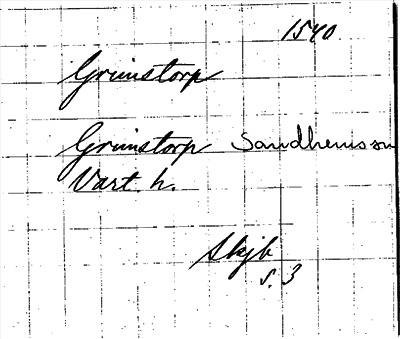 1540.
Grimstorp
Grimstorp Sandhems sn
Vart. h.
Skjb
s. 3